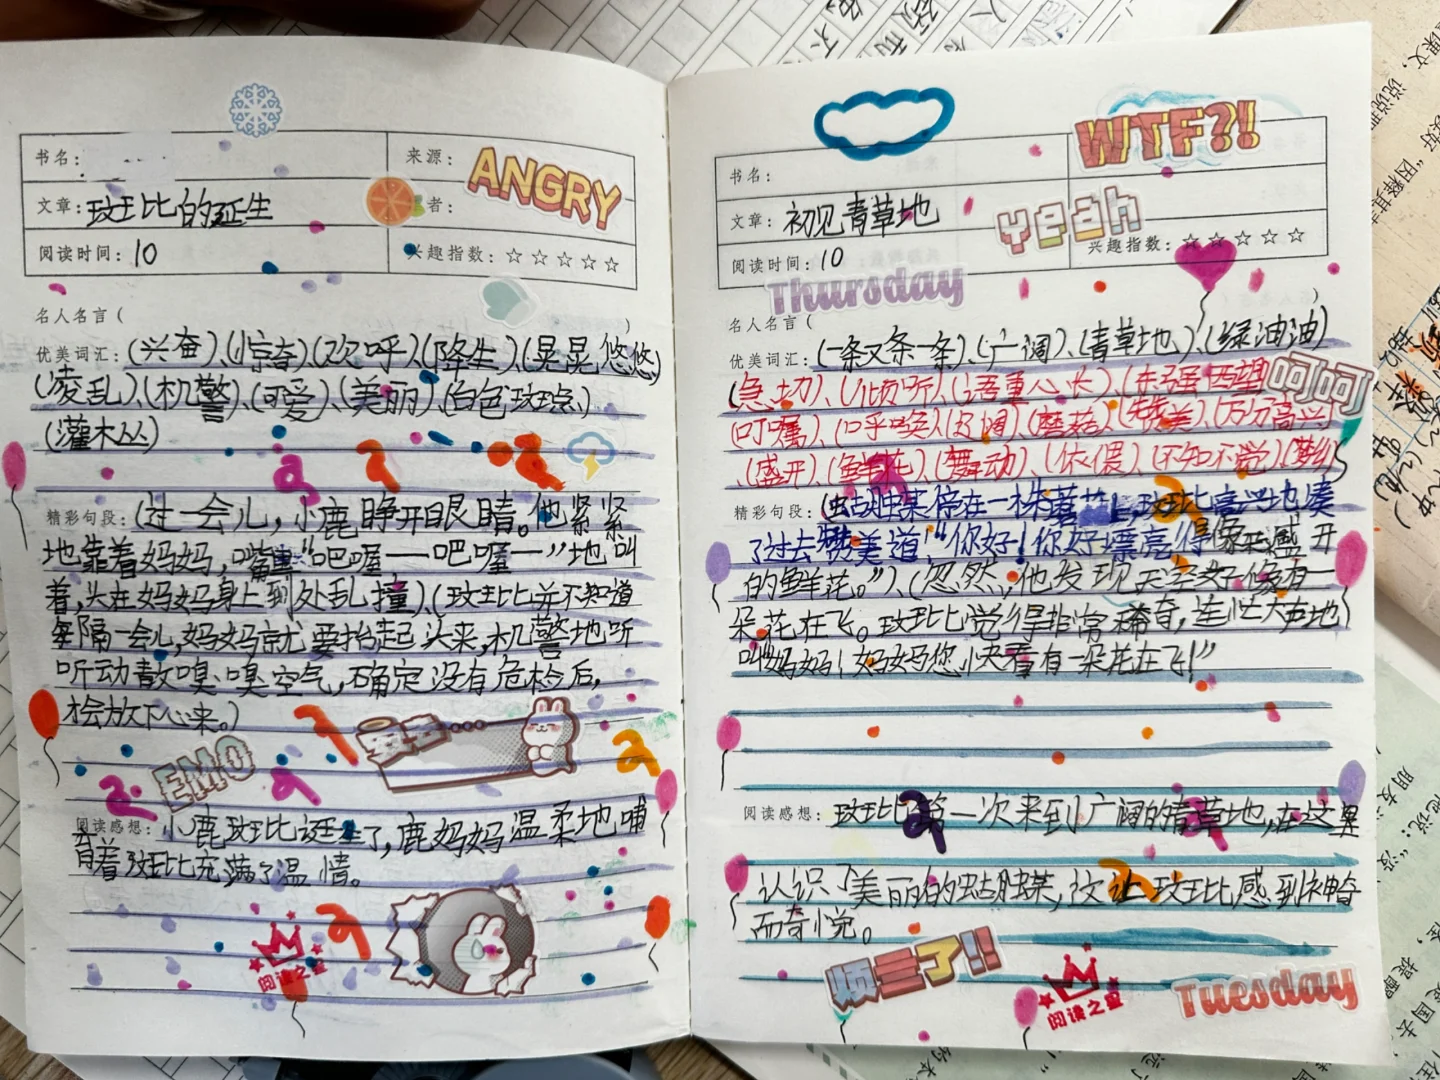 书名：
来源：
ANGRY
文章：斑比的诞生
者：
阅读时间：10
兴趣指数：☆☆☆☆☆
名人名言（ ）
优美词汇：（兴奋）、（惊奇）（欢呼）、（降生）、（晃晃悠悠）
（凌乱）、（机警）、（可爱）、（美丽）、（白色斑点）
（灌木丛）
精彩句段：（过一会儿，小鹿睁开眼睛。他紧紧
地靠着妈妈，嘴里“吧喔——吧喔——”地叫
着，头在妈妈身上到处乱撞）、（斑比并不知道
每隔一会儿，妈妈就要抬起头来，机警地听
听动静嗅嗅空气，确定没有危险后，
才会放下心来。）
EMO
阅读感想：小鹿斑比诞生了，鹿妈妈温柔地哺
育着斑比充满了温情。
阅读之星
WTF?!
书名：
Yeah
文章：初见青草地
阅读时间：10
兴趣指数：☆☆☆☆☆
Thursday
名人名言（ ）
优美词汇：（一条又一条）、（广阔）、（青草地）、（绿油油）
（急切）、（倾听）、（语重心长）、（东张西望）
呵呵
（叮嘱）、（呼唤）（赞美）、（万分高兴）
（盛开）、（鲜花）、（舞动）、（依偎）、（不知不觉）
精彩句段：（蝴蝶停在一株草上，斑比高兴地凑
了过去赞美道：“你好！你好漂亮，得像朵盛开
的鲜花。”）、（忽然，他发现天空好像有一
朵花在飞。斑比觉得非常稀奇，连忙大声地
叫“妈妈！妈妈您快看有一朵花在飞！”
阅读感想：斑比第一次来到广阔的青草地，在这里
认识了美丽的蝴蝶，这让斑比感到神奇
而奇悦。
烦亖了!!
阅读之星
Tuesday